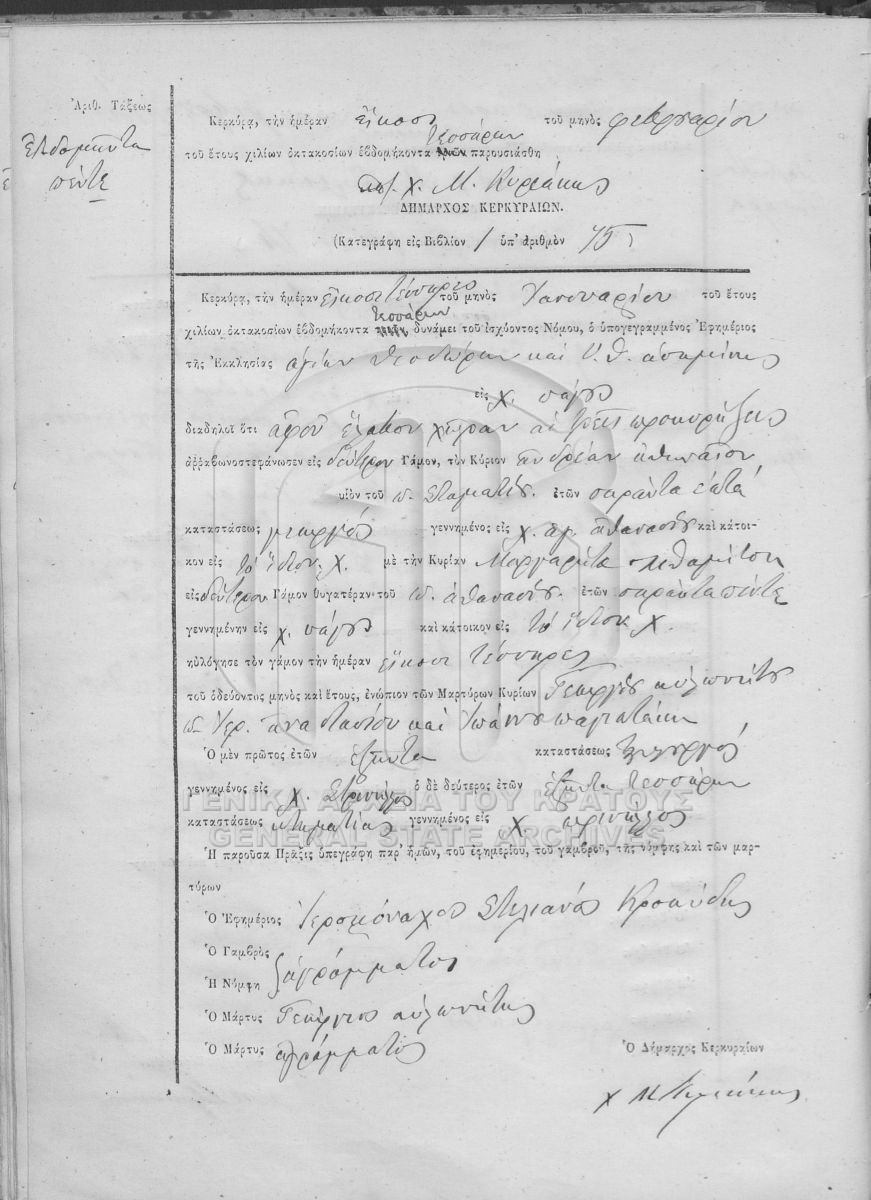 Ἀριθ. Τάξεως
Ἑβδομῆντα
πέντε
Κερκύρα, τὴν ἡμέραν εἴκοσι τοῦ μηνὸς φεβρουαρίου
τοῦ ἔτους χιλίων ὀκτακοσίων ἑβδομήκοντα τεσσάρων παρουσιάσθη
χ. Μ. Κυριάκης
ΔΗΜΑΡΧΟΣ ΚΕΡΚΥΡΑΙΩΝ.
(Κατεγράφη εἰς Βιβλίον 1 ὑπ' ἀριθμὸν 75)
Κερκύρα, τὴν ἡμέραν εἴκοσι τέσσαρες τοῦ μηνὸς Ἰανουαρίου τοῦ ἔτους
χιλίων ὀκτακοσίων ἑβδομήκοντα τεσσάρων δυνάμει τοῦ ἰσχύοντος Νόμου, ὁ ὑπογεγραμμένος Ἐφημέριος
τῆς Ἐκκλησίας ἁγίων Θεοδώρων καὶ Υ. Θ.
εἰς χ. πάγου
διαδηλοῖ ὅτι ἀφοῦ ἔλαβον χώραν αἱ τρεῖς προκηρύξεις
ἀῤῥαβωνοστεφάνωσεν εἰς δεύτερον Γάμον, τὸν Κύριον ἀνδρέαν
υἱὸν τοῦ π. Σταματίου. ἐτῶν σαράντα ἑπτά
καταστάσεως γεωργός γεννημένος εἰς χ. αγ. ἀθανασίου καὶ κάτοι-
κον εἰς τὸ ἴδιον χ. μὲ τὴν Κυρίαν Μαργαρίτα
εἰς δεύτερον Γάμον θυγατέραν τοῦ π. ἀθανασίου. ἐτῶν σαράντα πέντε
γεννημένην εἰς χ. πάγου καὶ κάτοικον εἰς τὸ ἴδιον χ.
ηὐλόγησε τὸν γάμον τὴν ἡμέραν εἴκοσι τέσσαρες
τοῦ ὁδεύοντος μηνὸς καὶ ἔτους, ἐνώπιον τῶν Μαρτύρων Κυρίων Γεωργίου αὐλωνίτου
π. Ἱερ. ἀναστασίου καὶ Ἰωάννου παγιατάκη
Ὁ μὲν πρῶτος ἐτῶν ἑξῆντα καταστάσεως ξυλουργός
γεννημένος εἰς χ. ὁ δὲ δεύτερος ἐτῶν ἑξῆντα τεσσάρων
καταστάσεως κτηματίας γεννημένος εἰς χ.
Ἡ παροῦσα Πρᾶξις ὑπεγράφη παρ' ἡμῶν, τοῦ ἐφημερίου, τοῦ γαμβροῦ, τῆς νύμφης καὶ τῶν μαρ-
τύρων
Ὁ Ἐφημέριος Ἱερομόναχος Στιλιανός
Ὁ Γαμβρὸς
Ἡ Νύμφη ἀγράμματοι
Ὁ Μάρτυς Γεώργιος αὐλωνίτης
Ὁ Μάρτυς ἀγράμματος
Ὁ Δήμαρχος Κερκυραίων
χ Μ Κυριάκης
ΓΕΝΙΚΑ ΑΡΧΕΙΑ ΤΟΥ ΚΡΑΤΟΥΣ
GENERAL STATE ARCHIVES